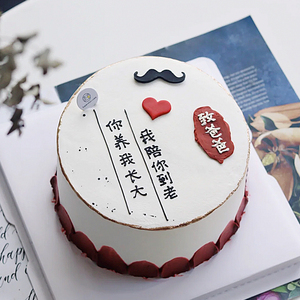 致爸爸
你养我长大
我陪你到老